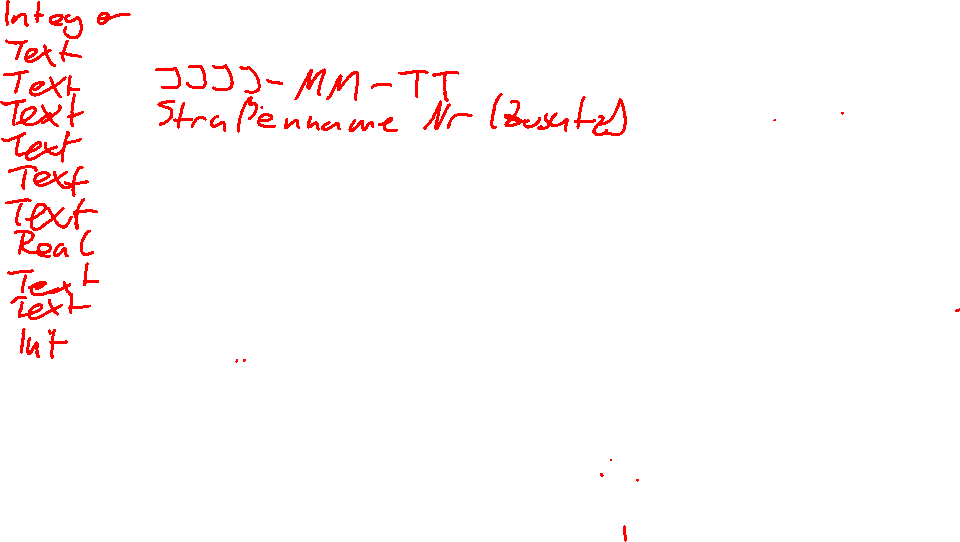 Integer
Text
Text JJJJ-MM-TT
Text Straßenname Nr (Zusatz)
Text
Text
Text
Real
Text
Text
Int